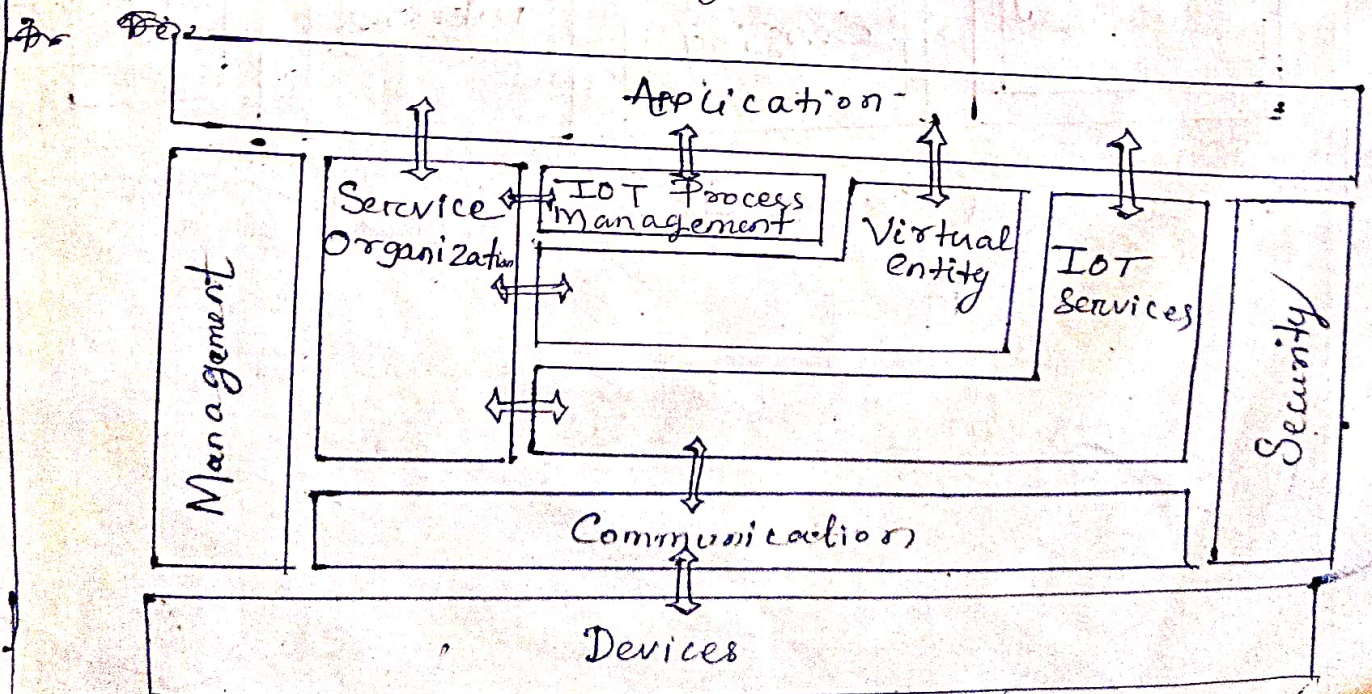 Application
Sercvice
Organization
IOT Process
Management
Virtual
entity
IOT
Services
Management
Security
Communication
Devices